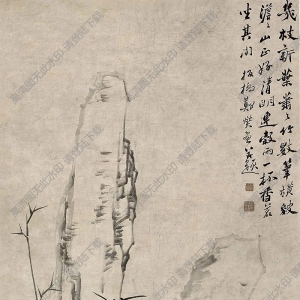 幾枝新葉蕭〻竹數筆橫皴
澹〻山正好清明連穀雨一杯香茗
坐其間 板橋鄭燮